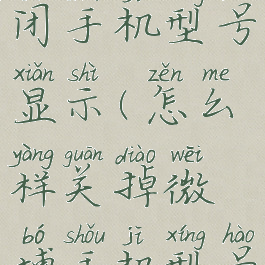 闭手机型号
xiǎn shì zěn me
显示(怎么
yàng guān diào wēi
样关掉微
bó shǒu jī xíng hào
博手机型号